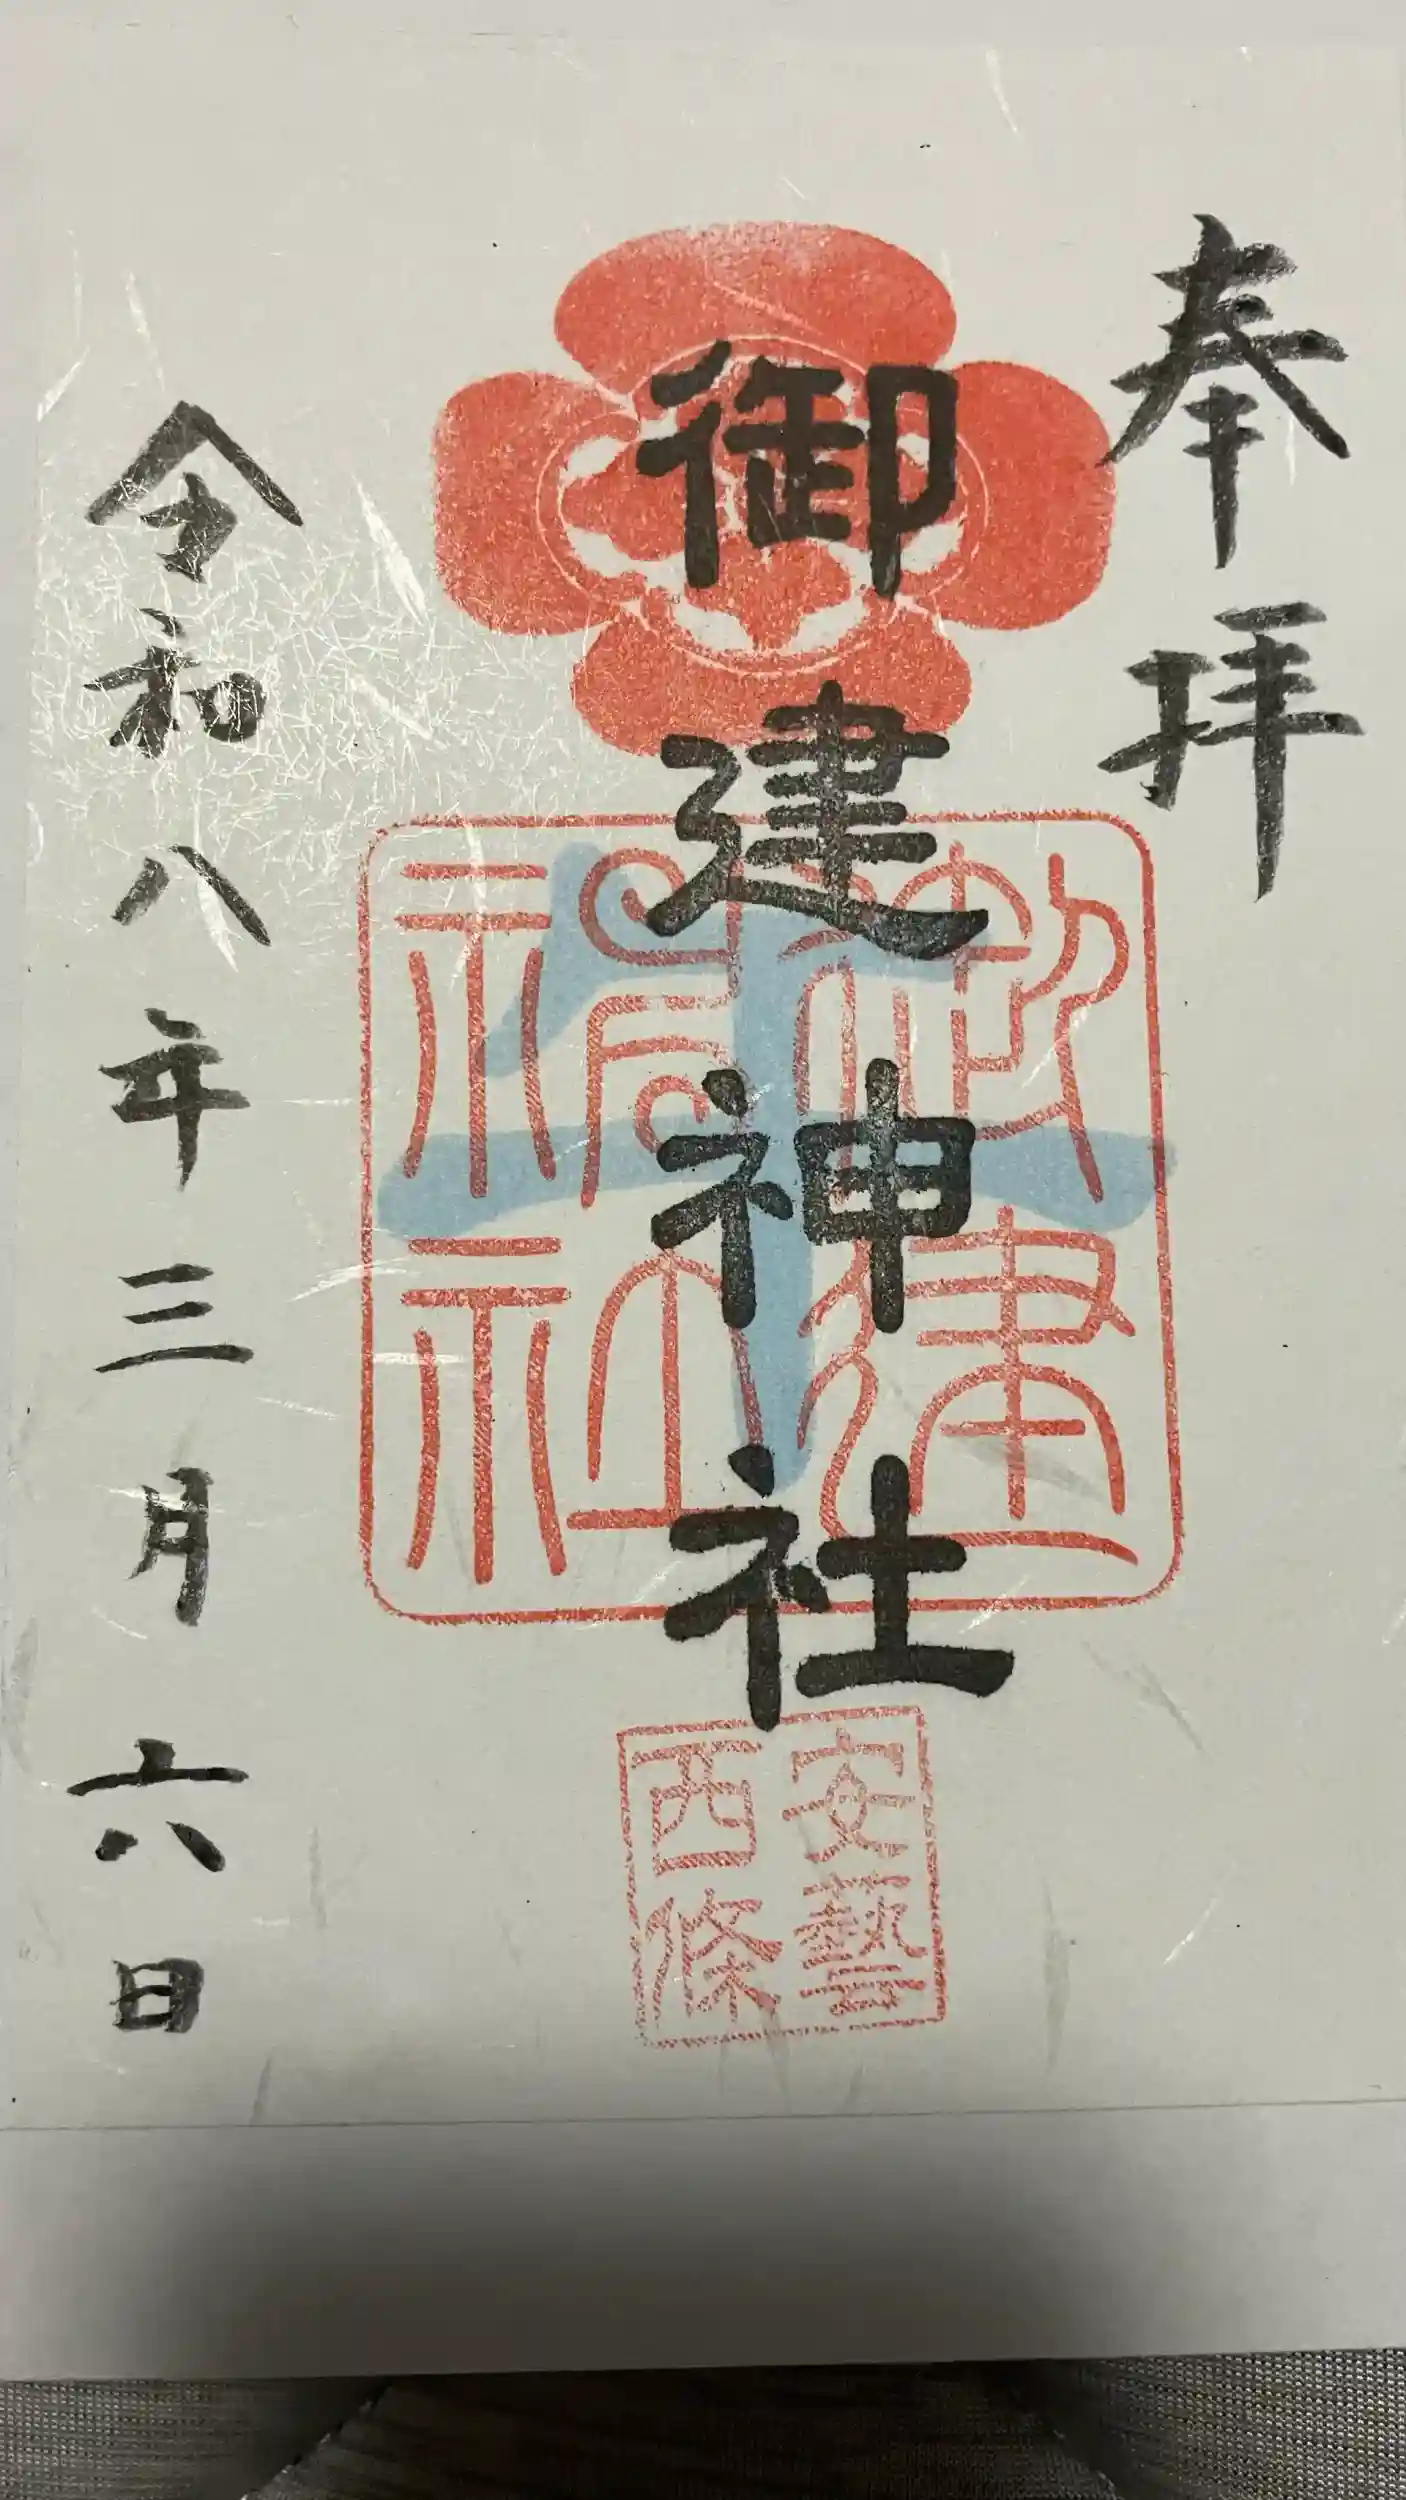 奉拝
御建神社
午
御建
神社
安藝
西條
令和八年三月六日